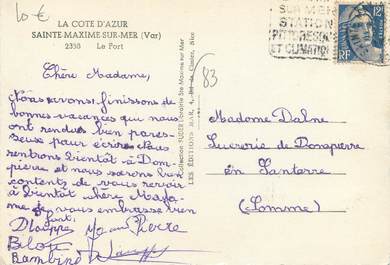 10 €
LA COTE D'AZUR
SAINTE-MAXIME-SUR-MER (Var)
2350 Le Port
SUR MER
STATION
PITTORESQUE
ET CLIMATIQUE
12F
RF
83
Chère Madame,
Nous avons finissons de
bonnes vacances que nous
ont rendus bien pares-
seux pour écrire. Nous
rentrons bientôt à Dom-
pierre et nous serons bien
contents de vous revoir
à bientôt chère Mada-
me de vous embrasse bien
fort.
Pierre
Bambino
Collection SUZER Papeterie Ste Maxime sur Mer
LES EDITIONS MAR, Nice
Madame Dalne
Sucrerie de Dompierre
en Santerre
(Somme)